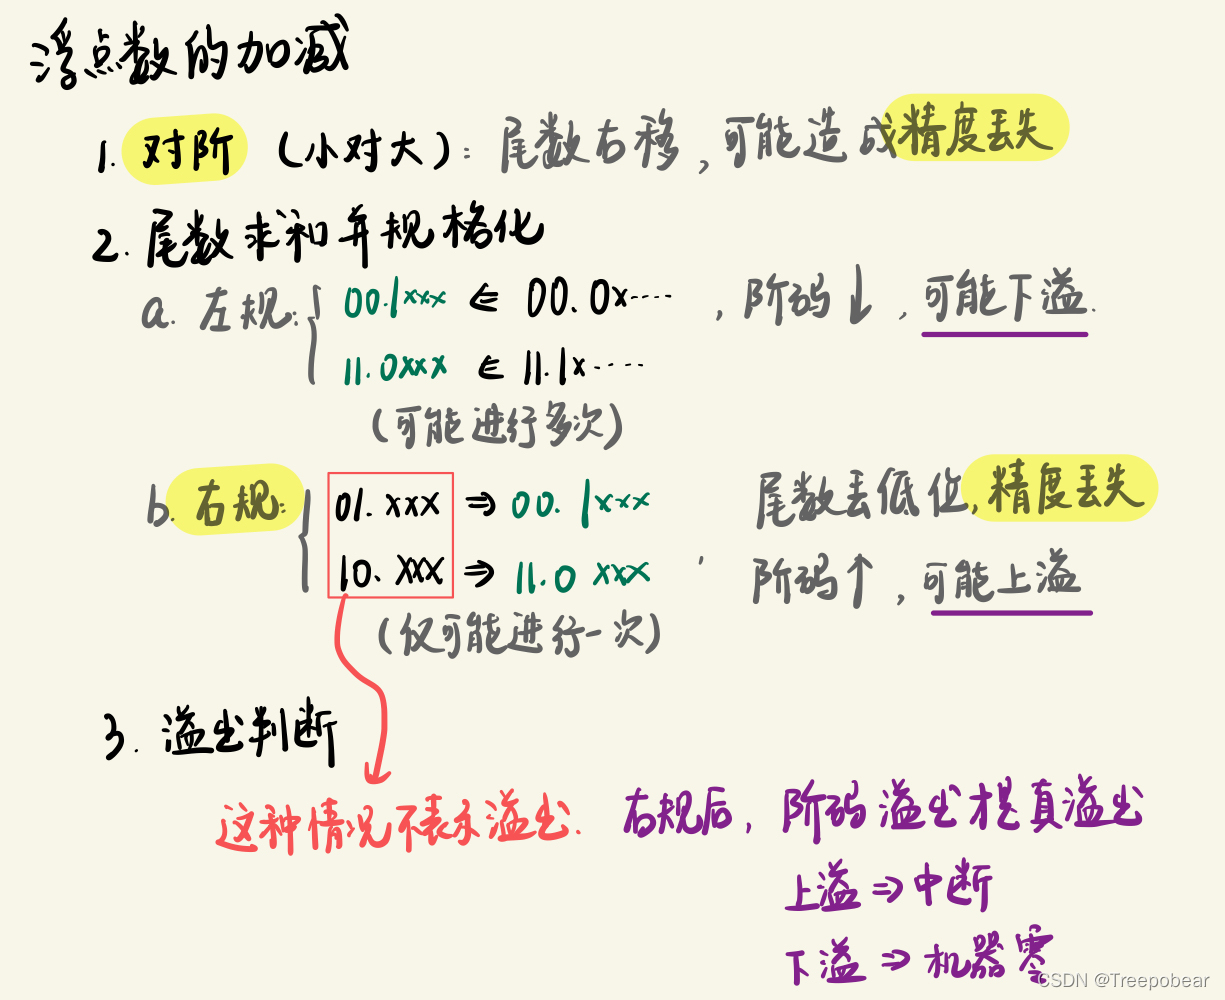 浮点数的加减
1. 对阶 (小对大): 尾数右移, 可能造成精度丢失
2. 尾数求和并规格化
a. 左规: { 00.1xxx ⇐ 00.0x···· , 阶码↓, 可能下溢.
11.0xxx ⇐ 11.1x·····
(可能进行多次)
b. 右规: { 01.xxx ⇒ 00.1xxx 尾数丢低位, 精度丢失
10.xxx ⇒ 11.0xxx , 阶码↑, 可能上溢
(仅可能进行一次)
3. 溢出判断
这种情况不表示溢出. 右规后, 阶码溢出才是真溢出
上溢 ⇒ 中断
下溢 ⇒ 机器零
CSDN @Treepobear